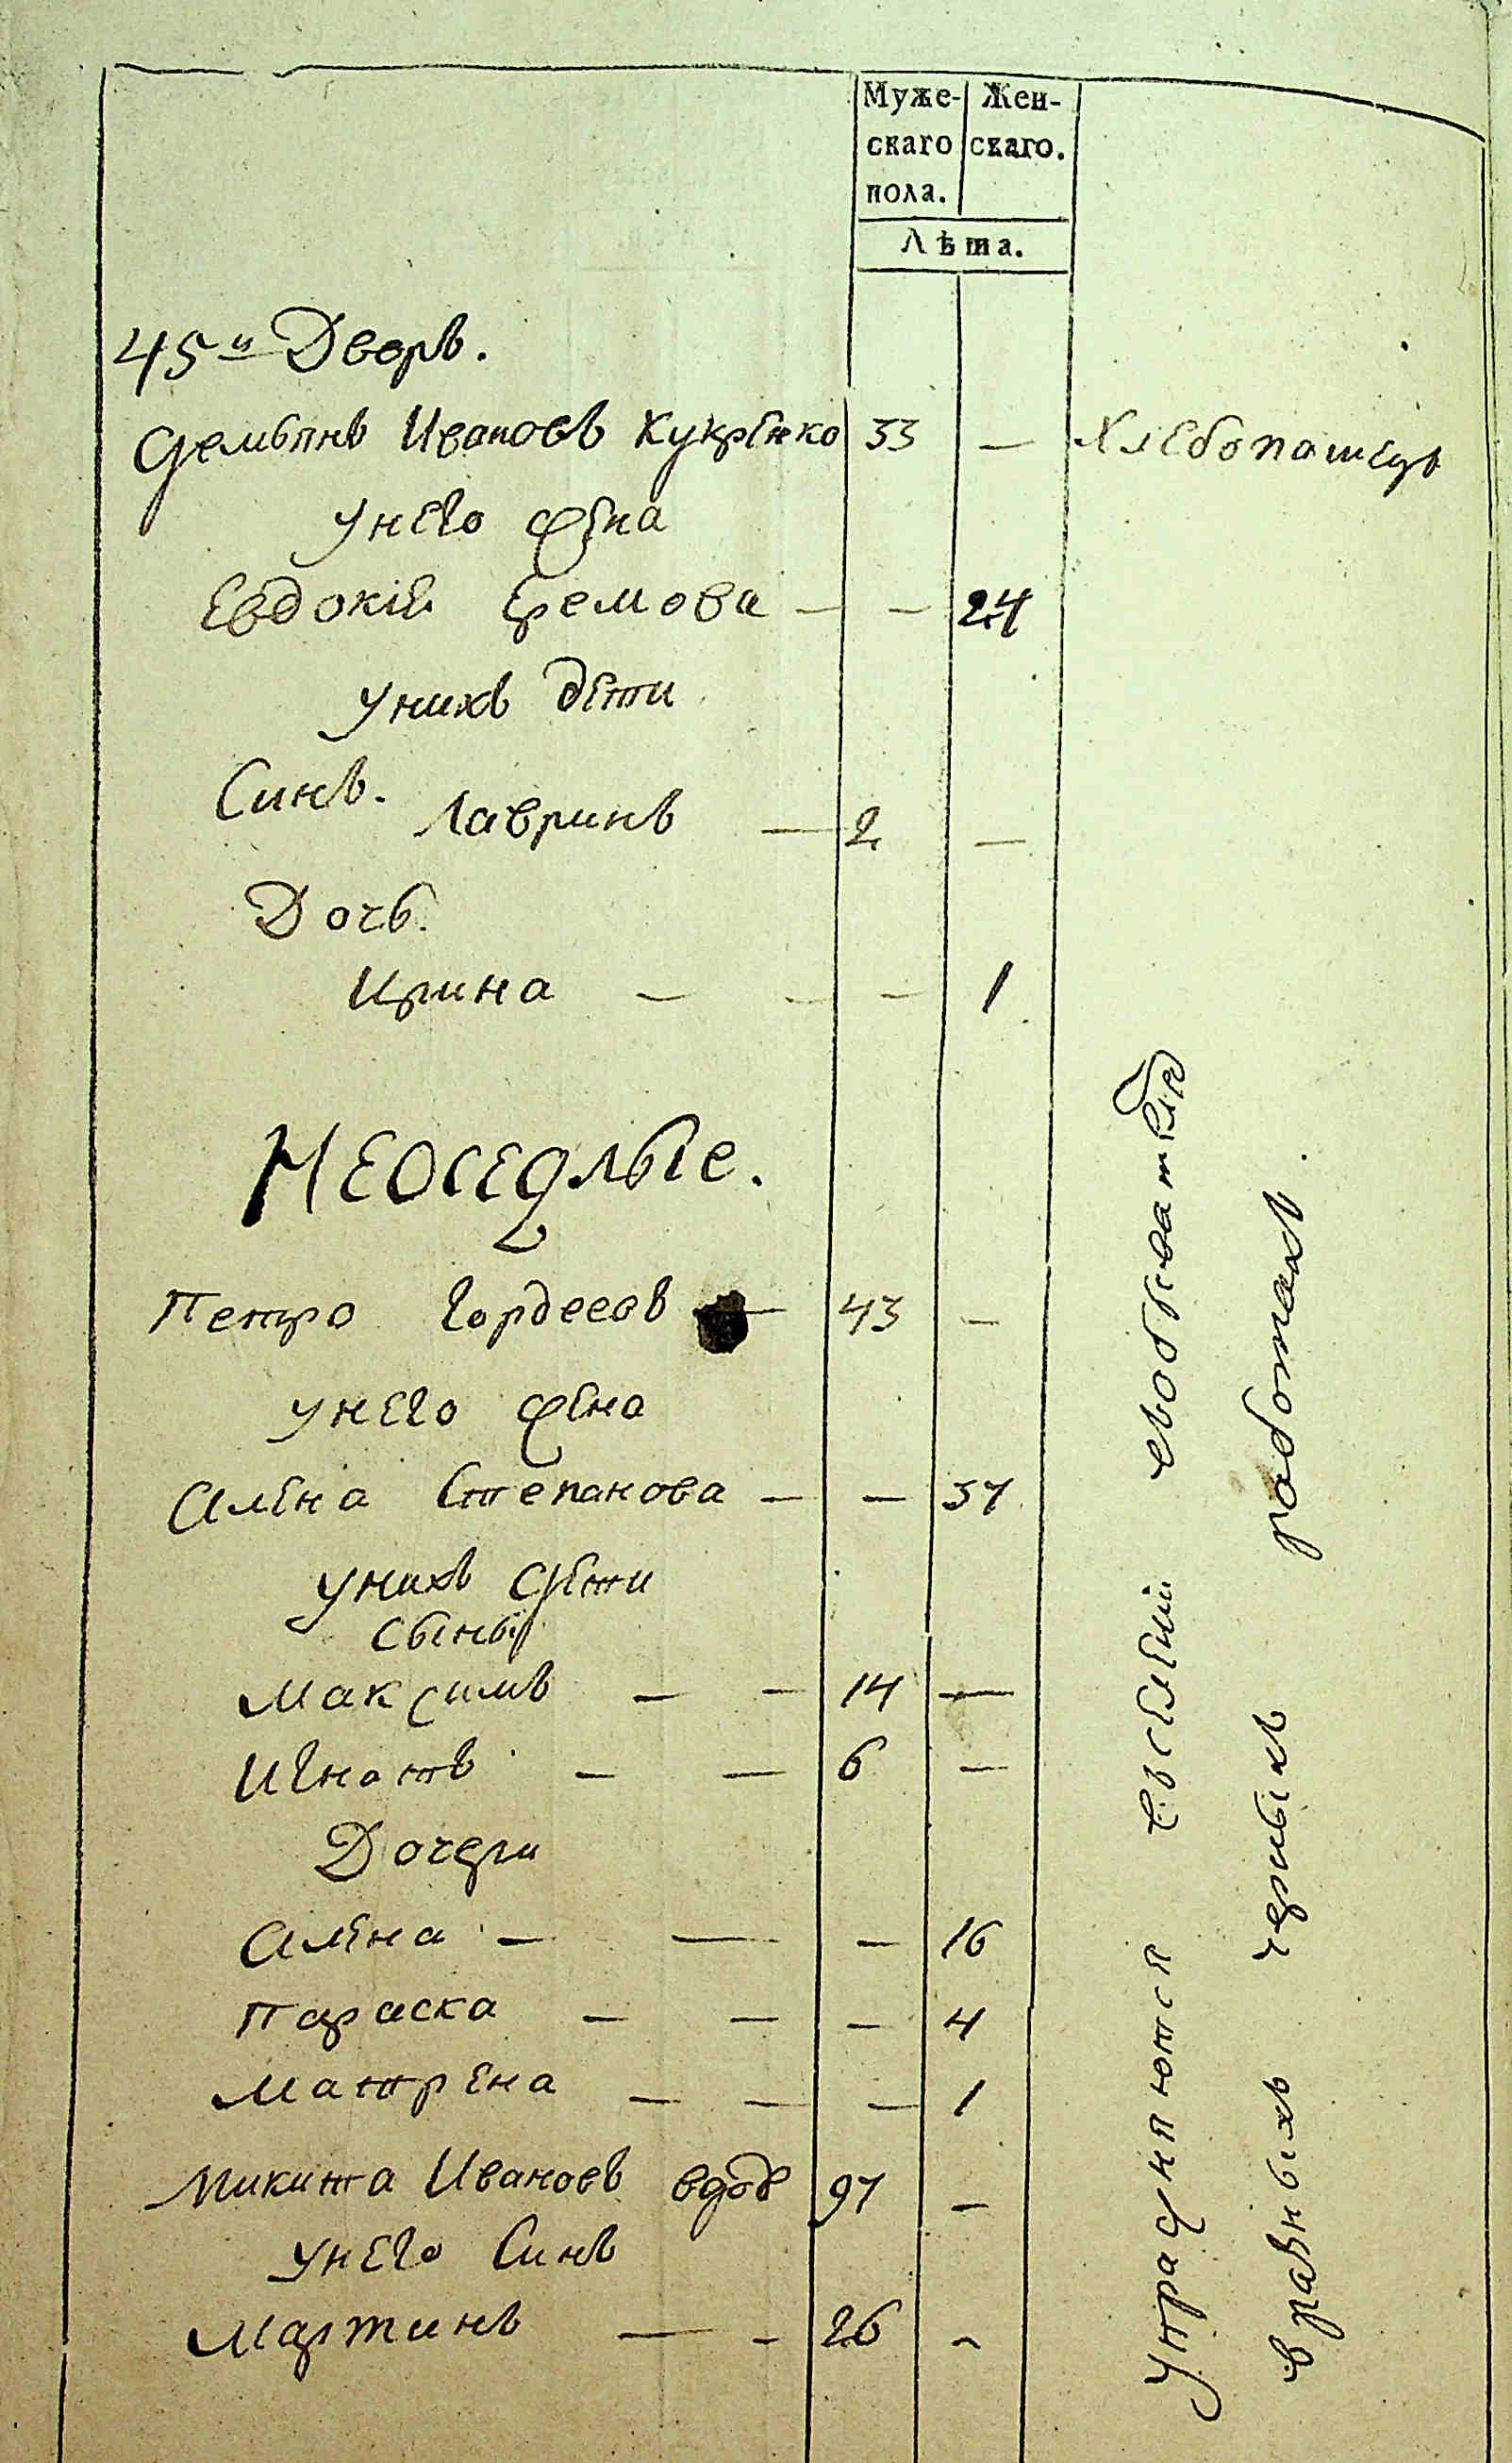 Муже- Жен-
скаго скаго.
пола.
Лѣта.
45й Дворъ.
Демьянъ Ивановъ Кукренко 33 — Хлебопашецъ
унего жена
Евдокія Еремова — — 24
унихъ дети
Синъ.
Лавринъ — 2 —
Дочь.
Ирина — — — 1
Неоседлые.
Петро Гордеевъ — 43 —
унего жена
Алена Степанова — — 37
унихъ дети
сыны
Максимъ — — 14 —
Игнатъ — — 6 —
Дочери
Алена — — — 16
Параска — — — 4
Матрена — — — 1
Микита Ивановъ вдовъ 97 —
унего Синъ
Мартинъ — — 26 —
Упражняются вселеніи
вразныхъ черныхъ работахъ.